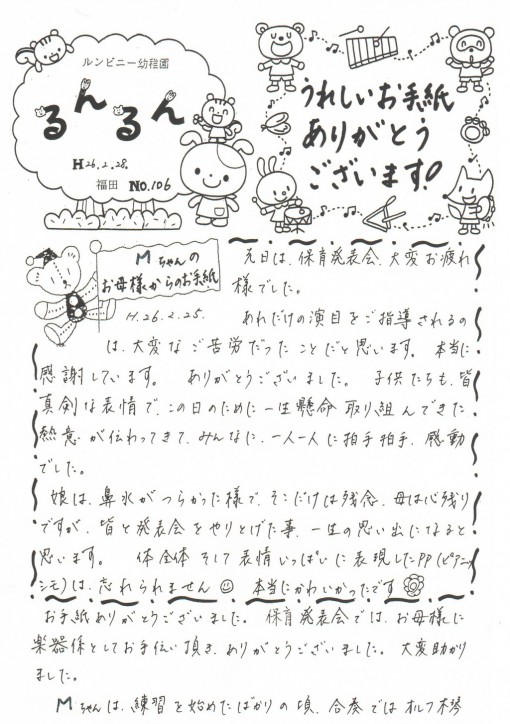 ルンビニー幼稚園
るんるん
H26.2.28.
福田 No.106
うれしいお手紙
ありがとう
ございます!
Mちゃんの
お母様からのお手紙
H.26.2.25.
先日は、保育発表会、大変お疲れ
様でした。
あれだけの演目をご指導されるの
は、大変なご苦労だったことだと思います。本当に
感謝しています。 ありがとうございました。 子供たちも、皆
真剣な表情で、この日のために一生懸命取り組んできた
熱意が伝わってきて、みんなに、一人一人に拍手拍手、感動
でした。
娘は、鼻水がつらかった様で、そこだけは残念、母は心残り
ですが、皆と発表会をやりとげた事、一生の思い出になると
思います。 体全体そして表情いっぱいに表現したPP(ピアニッ
シモ)は、忘れられません 本当にかわいかったです
お手紙ありがとうございました。保育発表会では、お母様に
楽器係としてお手伝い頂き、ありがとうございました。大変助かり
ました。
Mちゃんは、練習を始めたばかりの頃、合奏ではオルフ木琴